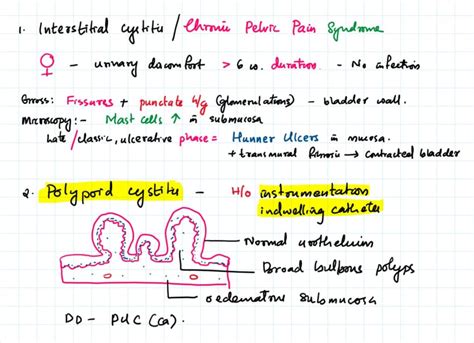 1. Interstitial cystitis / Chronic Pelvic Pain Syndrome
♀ - urinary discomfort > 6 w. duration. - No infection
Gross: Fissures + punctate h/g (glomerulations) - bladder wall.
Microscopy:- Mast cells ↑ in submucosa
Late/classic, ulcerative phase = Hunner Ulcers in mucosa.
+ transmural fibrosis → contracted bladder
2. Polypoid cystitis - H/o instrumentation
indwelling catheter
Normal urothelium
Broad bulbous polyps
oedematous submucosa
DD - PUC (ca).